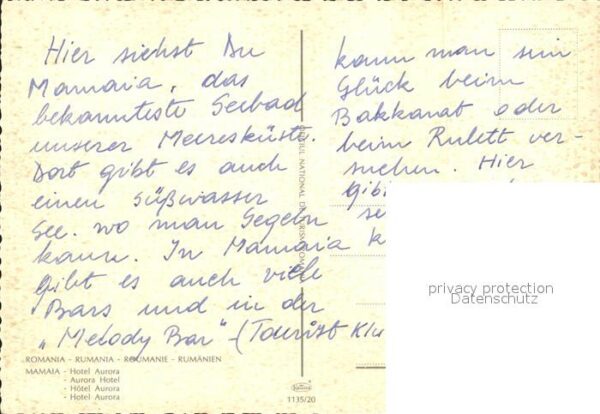 Hier siehst Du
Mamaia, das
bekannteste Seebad
unserer Meeresküste.
Dort gibt es auch
einen Süßwasser
See. wo man Segeln
kann. In Mamaia
gibt es auch viele
Bars und in der
"Melody Bar" (Tourist Klu
kann man sein
Glück beim
Bakkanat oder
beim Rulett ver-
suchen. Hier
gib
se
k
privacy protection
Datenschutz
ROMANIA - RUMANIA - ROUMANIE - RUMÄNIEN
MAMAIA - Hotel Aurora
- Aurora Hotel
- Hôtel Aurora
- Hotel Aurora
1135/20